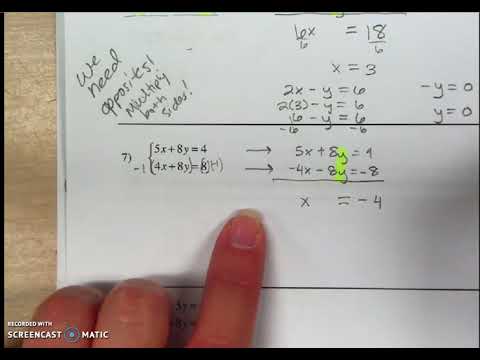 6x = 18
6 6
x = 3
We
need
opposites!
Multiply
both
sides!
2x - y = 6
2(3) - y = 6
6 - y = 6
-6 -6
-y = 0
y = 0
7) { 5x + 8y = 4 → 5x + 8y = 4
-1 (4x + 8y) = (8)(-1) → -4x - 8y = -8
x = -4
RECORDED WITH
SCREENCAST MATIC